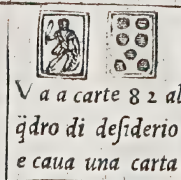 V a a carte 8 2 al
q̃dro di deſiderio
e caua una carta